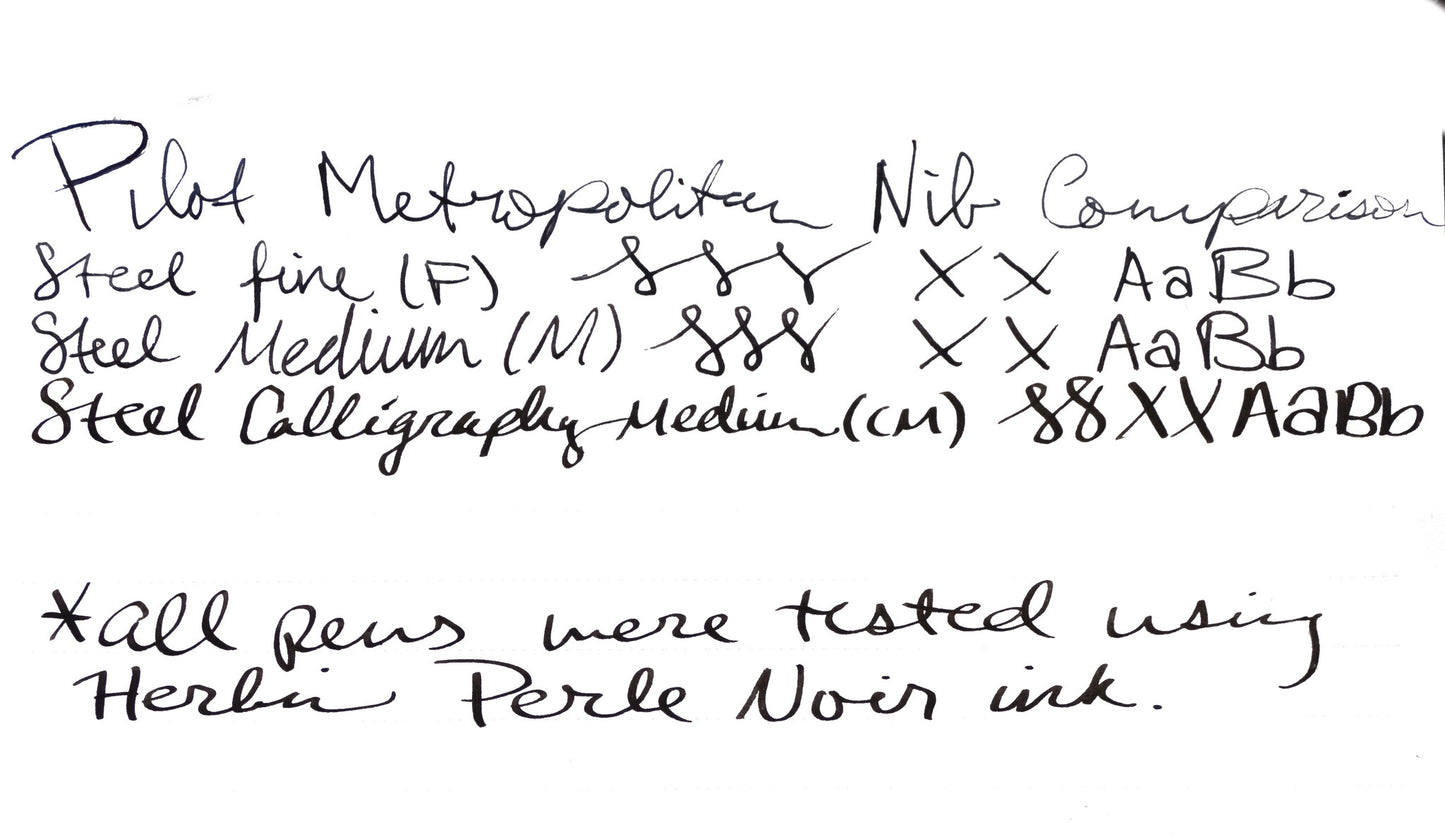 Pilot Metropolitan Nib Comparison
Steel fine (F) X X AaBb
Steel Medium (M) X X AaBb
Steel Calligraphy Medium (CM) XXAaBb
*all pens were tested using
Herbin Perle Noir ink.